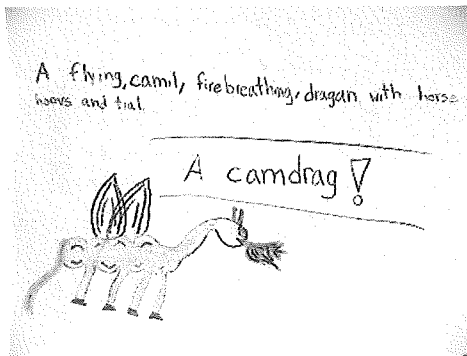 A flying, camil, firebreathing, dragan with horse
hoovs and tial.
A camdrag!